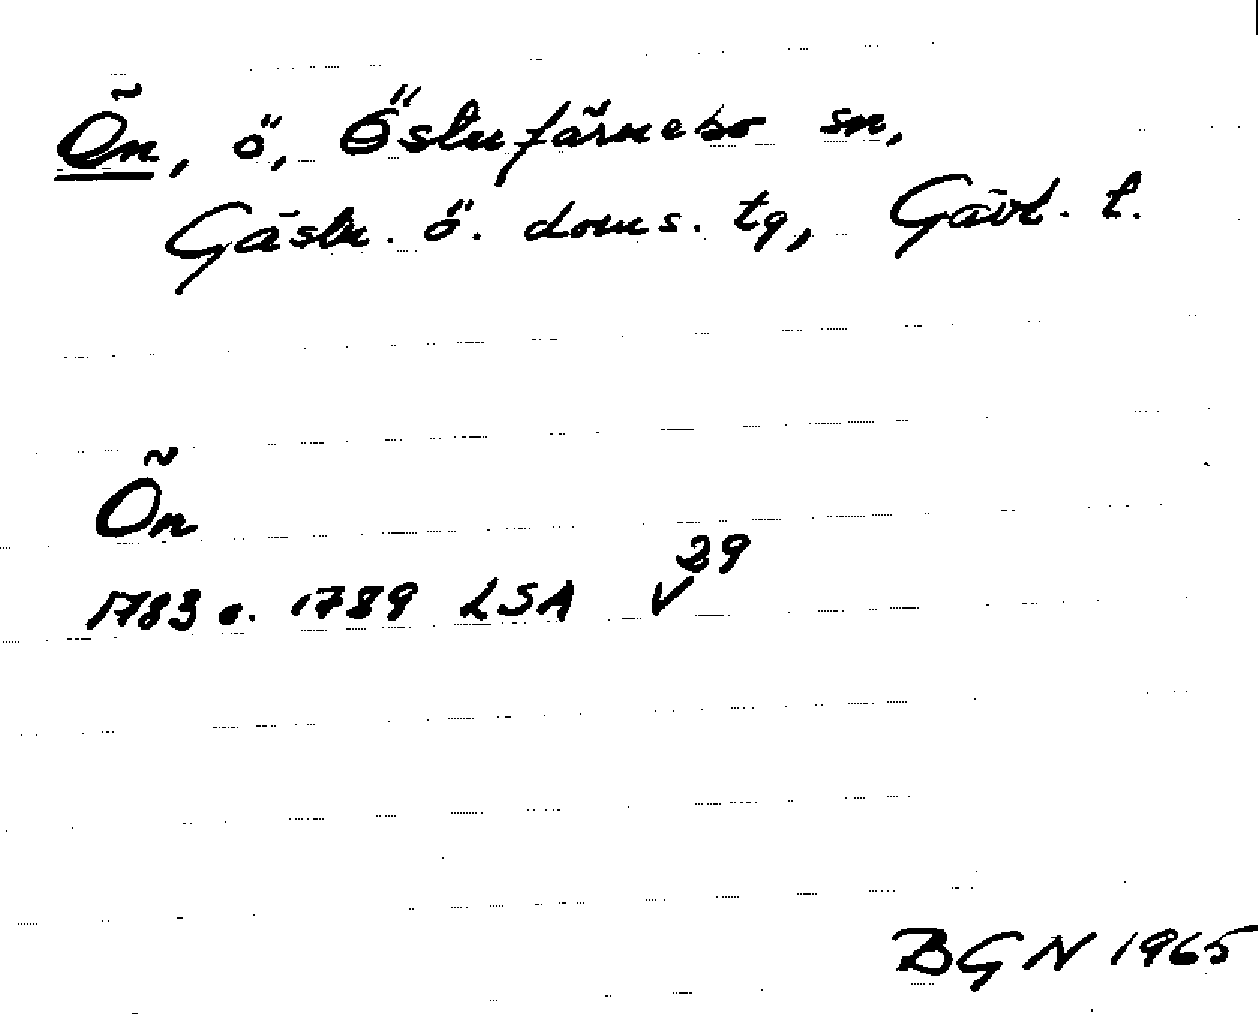 Ön, ö, Österfärnebo sn,
Gästr. ö. doms. tg, Gävl. l.
Ön
1783 o. 1789 LSA V 39
BGN 1965